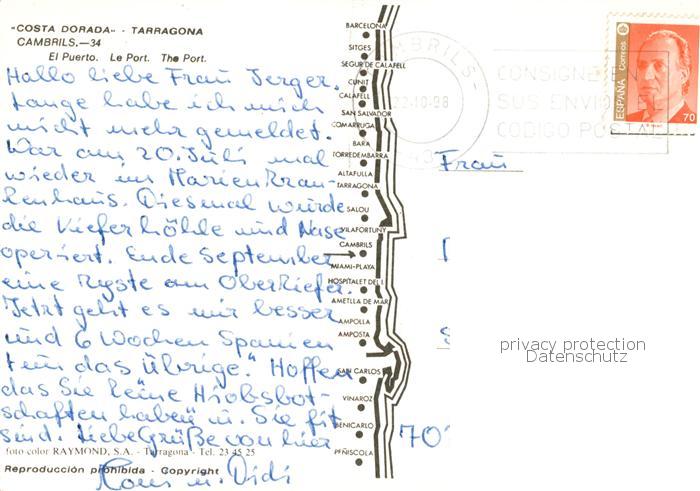 "COSTA DORADA" - TARRAGONA
CAMBRILS.—34
El Puerto. Le Port. The Port.
Hallo liebe Frau Jerger.
Lange habe ich mich
nicht mehr gemeldet.
War am 20. Juli mal
wieder im Marienkran-
kenhaus. Diesmal wurde
die Kieferhöhle und Nase
operiert. Ende September
eine Zyste am Oberkiefer.
Jetzt geht es mir besser
und 6 Wochen Spanien
tun das übrige." Hoffen
das Sie keine Hiobsbot-
schaften haben u. Sie fit
sind. Liebe Grüße von hier
Hans u. Didi
foto color RAYMOND, S.A. - Tarragona - Tel. 23 45 25
Reproducción prohibida - Copyright
BARCELONA
SITGES
SEGUR DE CALAFELL
CUNIT
CALAFELL
SAN SALVADOR
COMARRUGA
BARA
TORREDEMBARRA
ALTAFULLA
TARRAGONA
SALOU
VILAFORTUNY
CAMBRILS
MIAMI-PLAYA
HOSPITALET DEL I.
AMETLLA DE MAR
AMPOLLA
AMPOSTA
SAN CARLOS
VINAROZ
BENICARLO
PEÑISCOLA
CAMBRILS
22-10-98
43
CONSIGNE EN
SUS ENVIOS EL
CODIGO POSTAL
ESPAÑA Correos
70
Frau
70
privacy protection
Datenschutz